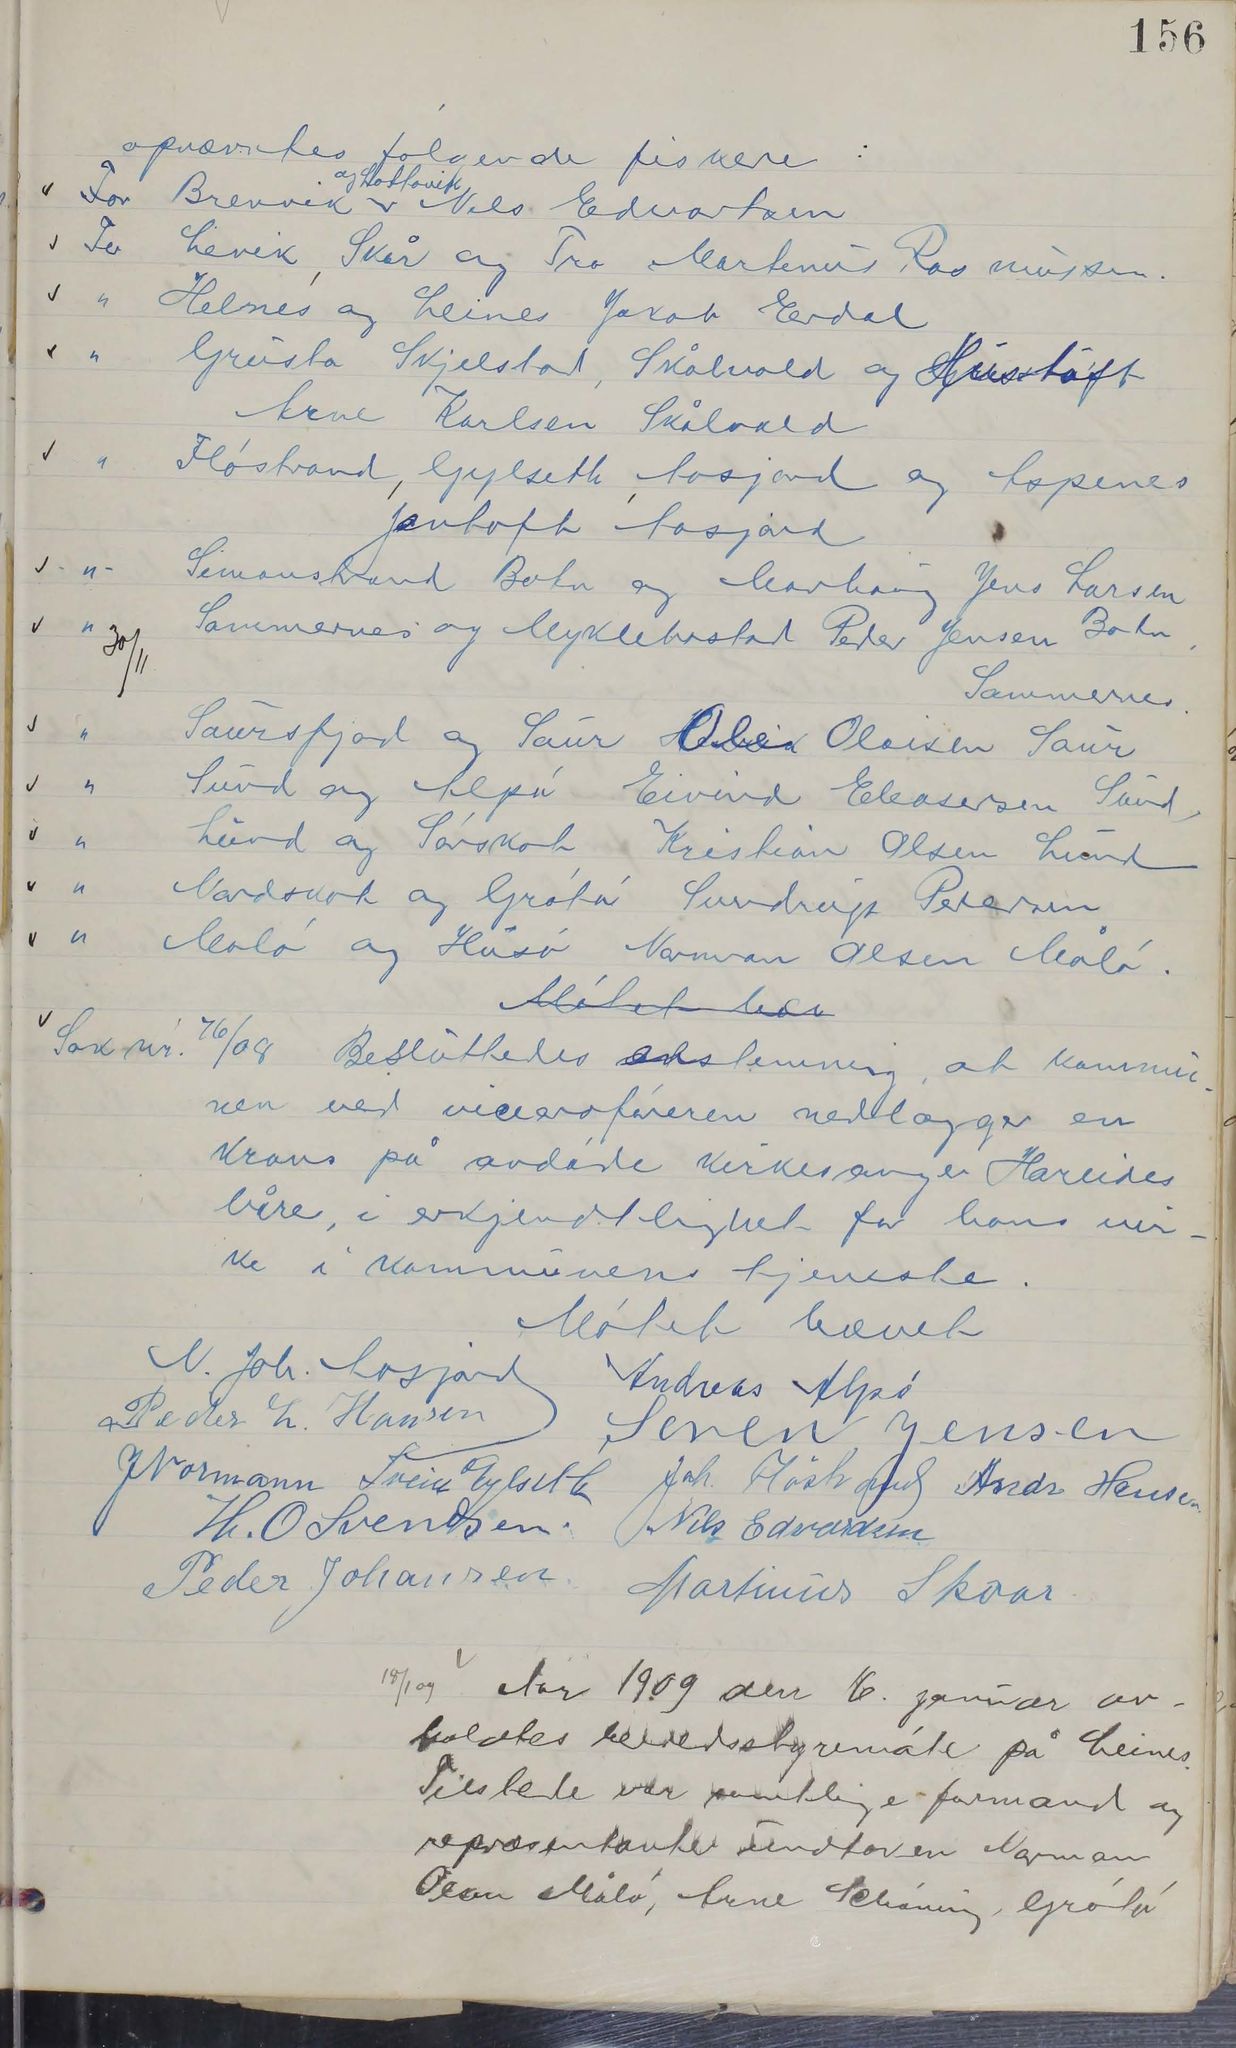 156
opnævntes følgende fiskere :
og Hottovik
For Brennvik v Nils Edvartsen
For Leivik, Skår og Tro Martinus Rasmussen.
" Helnes og Leines Jakob Eerdal
" Grusta Skjelstad, Skålvold og Hustoft
Arne Karlsen Skålvold
" Fløstrand, Gylseth, Aasjord og Aspenes
Jentoft Aasjord
-"- Simonstrand Botn og Marhaug Jens Larsen
" Sammernes og Myklebostad Peder Jensen Botn,
30/11
Sammernes.
" Saursfjord og Saur Oloisen Saur
" Sund og Alpø Eivind Eleasersen Sund,
" Lund og Sørskot Kristian Olsen Lund
" Nordskot og Grøtø Petersen
" Målø og Husø Norman Olsen Målø.
Møtet hæv
Sak nr. 76/08 Besluttedes enstemmig, at kommu-
nen ved viceordføreren nedlægger en
krans på avdøde kirkesanger Hareides
båre, i erkjendtlighet for hans vir-
ke i kommunens tjeneste.
Møtet hævet
N. Joh. Aasjord Andreas Alpø
Peder L. Hansen Søren Jensen
J Normann Svein Gylseth Joh. Fløstrand Andr Hansen
Th. O Svendsen. Nils Edvardsen
Peder Johansen Martinus Skaar
18/1 09 Aar 1909 den 16. januar av-
holdtes herredsstyremøte på Leines.
Tilstede var samtlige formænd og
repræsentanter undtaken Norman
Olsen Målø, Arne Schøning, Grøtø